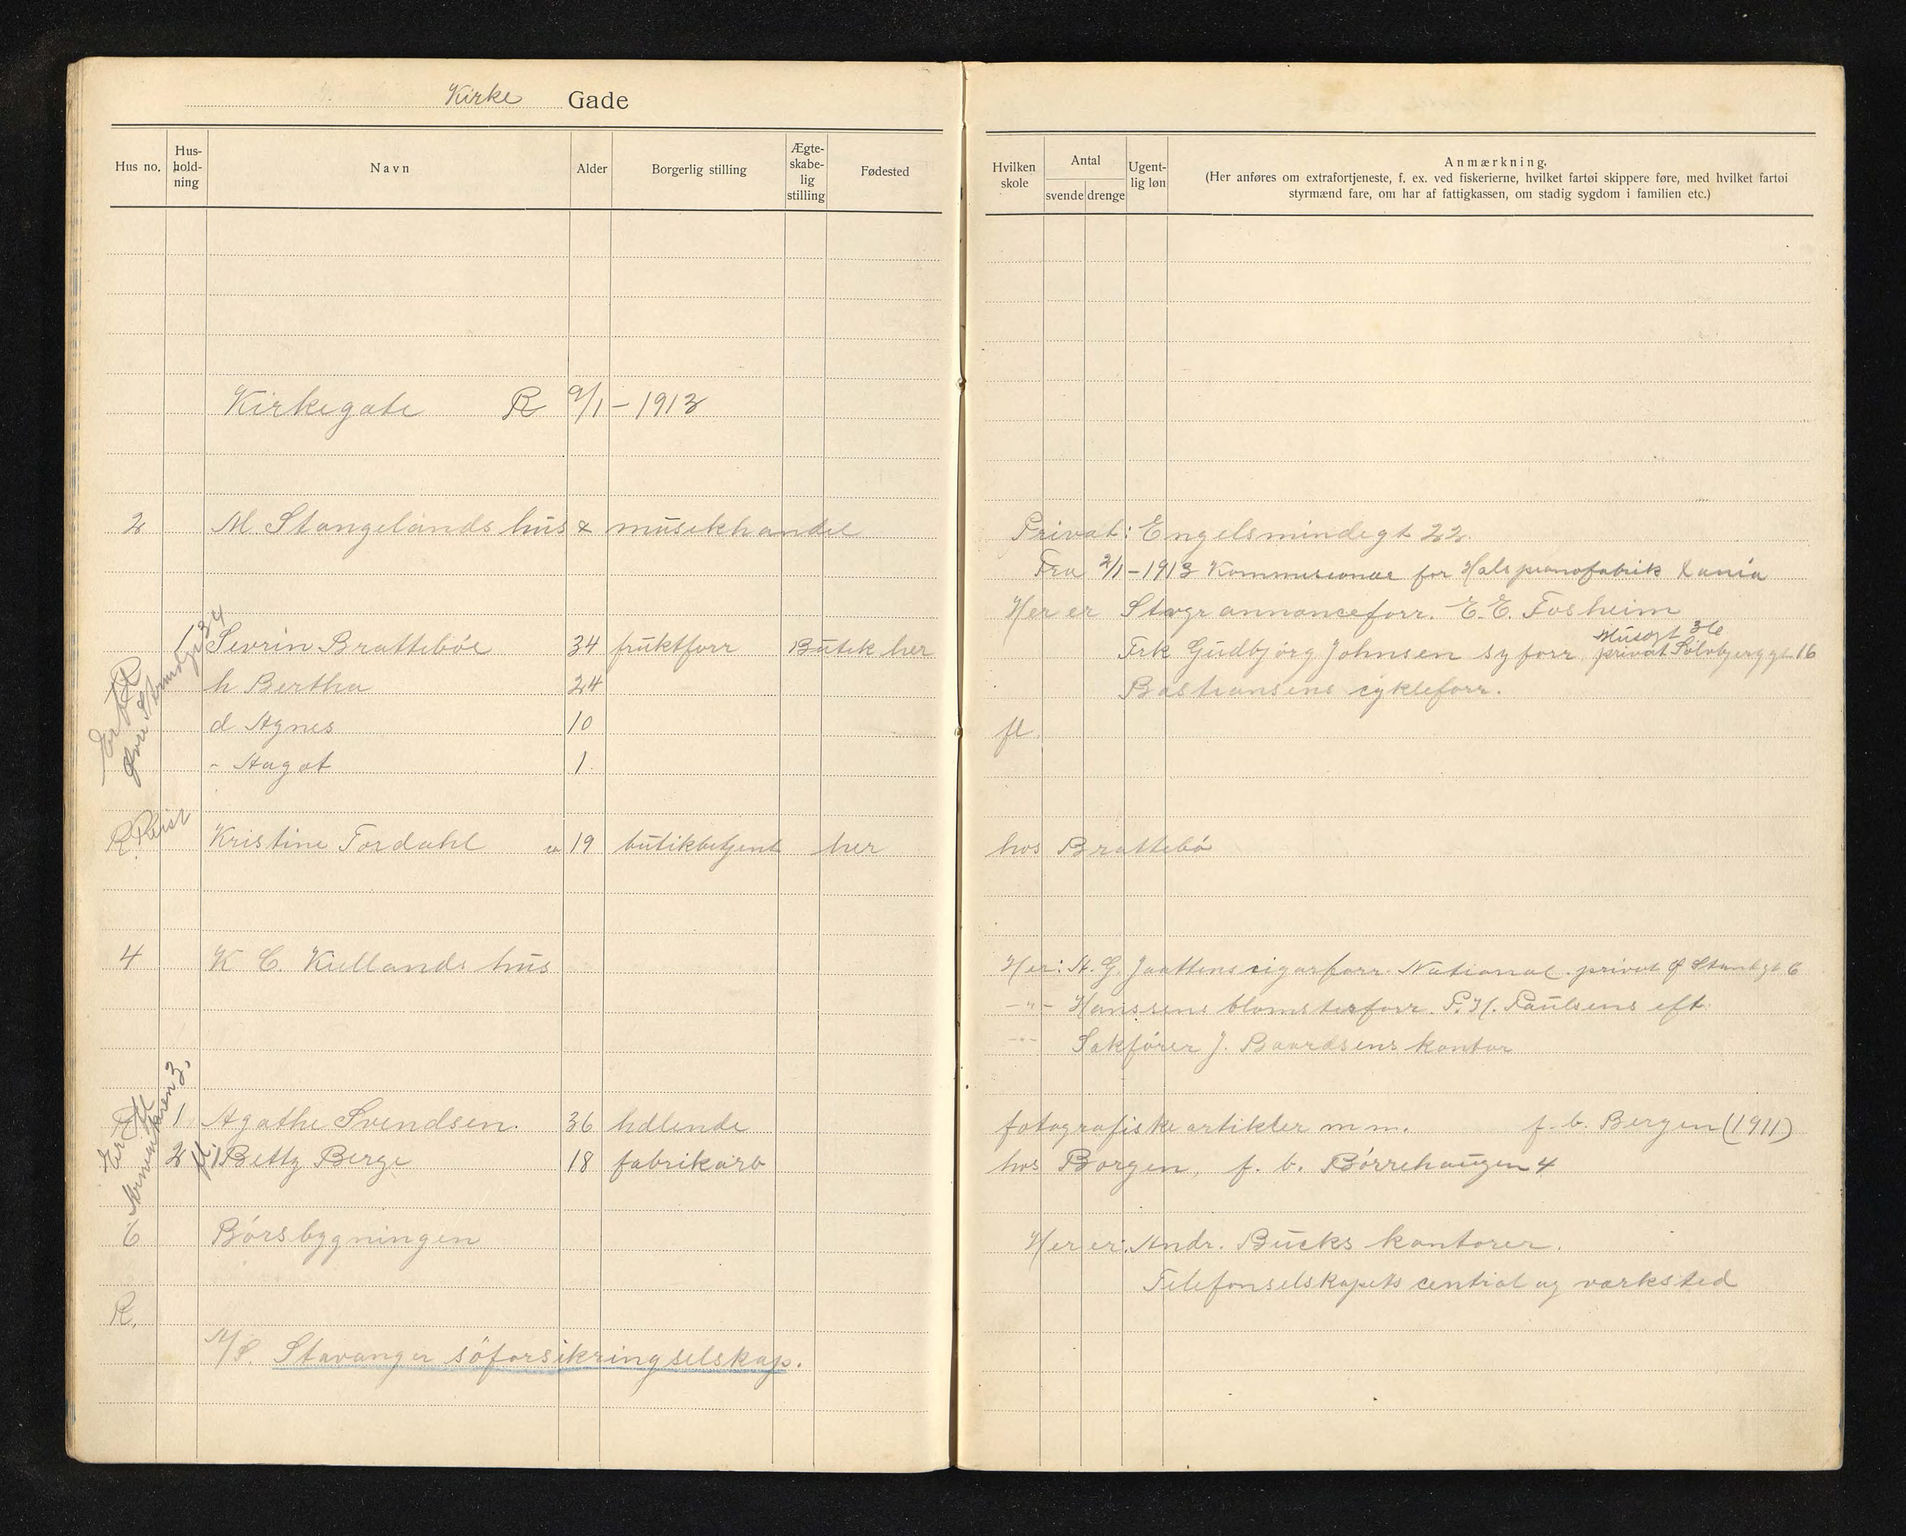 Kirke Gade
Hus no. Hus-hold-ning Navn Alder Borgerlig stilling Ægte-skabe-lig stilling Fødested
Kirkegate R 9/1 - 1913
2 M. Stangelands hus & musikhandel
1 Sevrin Brattebøe 34 fruktforr Butik her
h Bertha 24
d Agnes 10
- Aagot 1
R. Reist Kristine Tordahl 19 butikbetjent her
4 K C. Kiellands hus
1 Agathe Svendsen. 36 hdlende
2 Betty Berge 18 fabrikarb
6 Børsbygningen
R.
A/S. Stavanger söforsikringselskap.
Hvilken skole Antal svende drenge Ugent-lig løn Anmærkning.
(Her anføres om extrafortjeneste, f. ex. ved fiskerierne, hvilket fartøi skippere føre, med hvilket fartøi
styrmænd fare, om har af fattigkassen, om stadig sygdom i familien etc.)
Privat: Engelsmindegt 22.
Fra 2/1 - 1913 Kommissionær for Hals pianofabrik Xania
Her er Stvgr annonceforr. E. E. Fosheim
Musegt 36
Frk Gudbjørg Johnsen syforr. privat Sölvbjerggt 16
Bastiansens cykleforr.
fl.
hos Brattebö
Her: A. G. Jaattens cigarforr. National. privat Ø Strandgt 6
- " - Hanssens blomsterforr. P. H. Paulsens eft.
Sakfører J. Baardsens kontor
fotografiske artikler m m. f. b. Bergen (1911)
hos Borgen, f. b. Børrehaugen 4
Her er: Andr. Bucks kontorer.
Telefonselskapets central og værksted